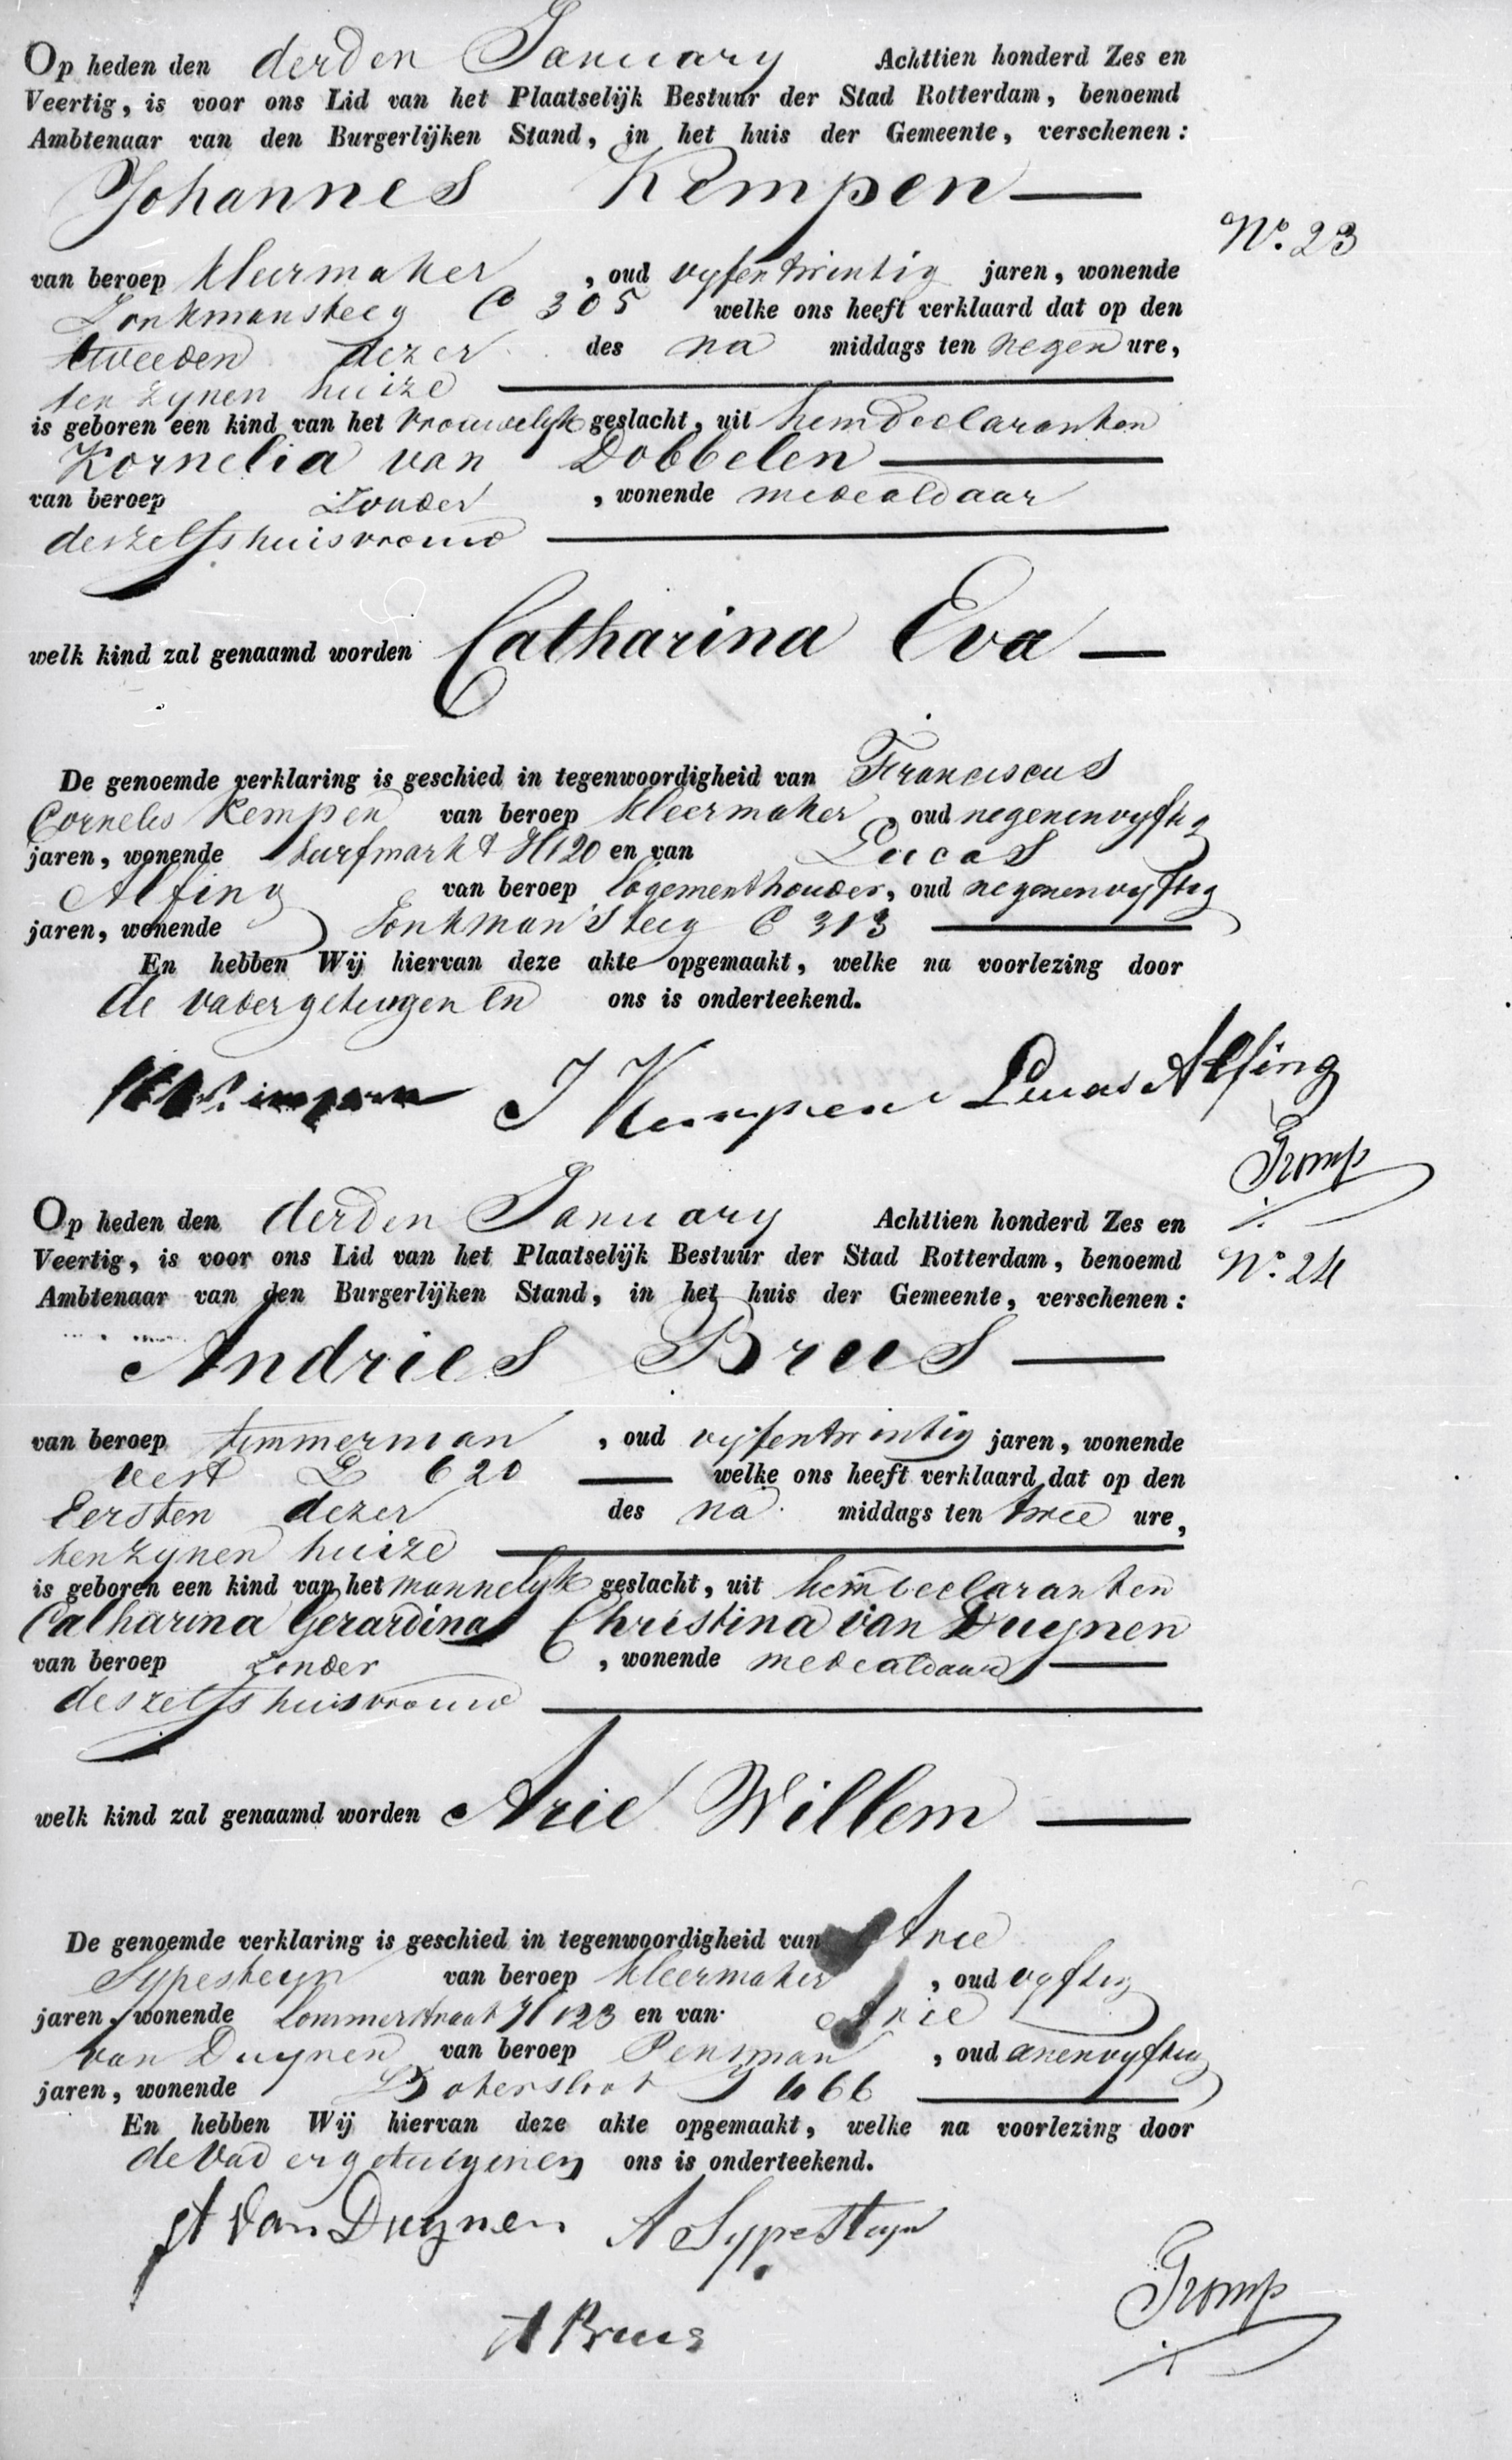 Op heden den derden January Achttien honderd Zes en
Veertig, is voor ons Lid van het Plaatselijk Bestuur der Stad Rotterdam, benoemd
Ambtenaar van den Burgerlijken Stand, in het huis der Gemeente, verschenen:
Johannes Kempen
No. 23
van beroep kleermaker, oud vyfentwintig jaren, wonende
Lonkmansteeg C 305 welke ons heeft verklaard dat op den
tweeden dezer des na middags ten negen ure,
ten zynen huize
is geboren een kind van het vrouwelyk geslacht, uit hem declaranten
Kornelia van Dobbelen
van beroep Zonder, wonende mede aldaar
deszelfs huisvrouw
welk kind zal genaamd worden Catharina Eva
De genoemde verklaring is geschied in tegenwoordigheid van Franciscus
Cornelis Kempen van beroep kleermaker, oud negenenvyftig
jaren, wonende turfmarkt H 120 en van Lucas
Alfing van beroep logementhouder, oud negenenvyftig
jaren, wonende Lonkmansteeg C 313
En hebben Wij hiervan deze akte opgemaakt, welke na voorlezing door
de vader getuigen en ons is onderteekend.
J Kempen Lucas Alfing
Tromp
Op heden den derden January Achttien honderd Zes en
Veertig, is voor ons Lid van het Plaatselijk Bestuur der Stad Rotterdam, benoemd
No. 24
Ambtenaar van den Burgerlijken Stand, in het huis der Gemeente, verschenen:
Andries Brus
van beroep timmerman, oud vyfentwintig jaren, wonende
vest L 620 welke ons heeft verklaard dat op den
Eersten dezer des na middags ten twee ure,
ten zynen huize
is geboren een kind van het mannelyk geslacht, uit hem declaranten
Catharina Gerardina Christina van Duynen
van beroep zonder, wonende mede aldaar
deszelfs huisvrouw
welk kind zal genaamd worden Arie Willem
De genoemde verklaring is geschied in tegenwoordigheid van Arie
Sypesteyn van beroep kleermaker, oud vyftig
jaren, wonende Lommerstraat H 123 en van Arie
van Duynen van beroep Penman, oud een envyftig
jaren, wonende Botersloot I 466
En hebben Wij hiervan deze akte opgemaakt, welke na voorlezing door
de Vader getuigen en ons is onderteekend.
A van Duynen A Sypesteyn
A Brus
Tromp